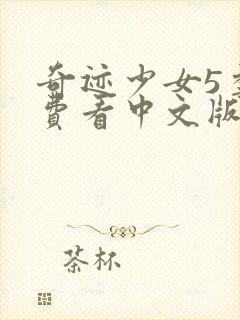 奇迹少女5
费看中文版
茶杯